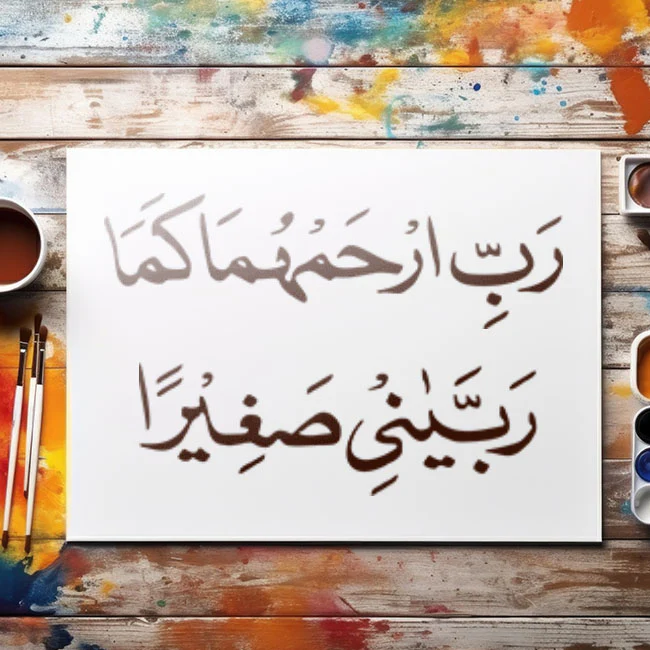 رَبِّ ارْحَمْهُمَا كَمَا
رَبَّيٰنِيْ صَغِيْرًا